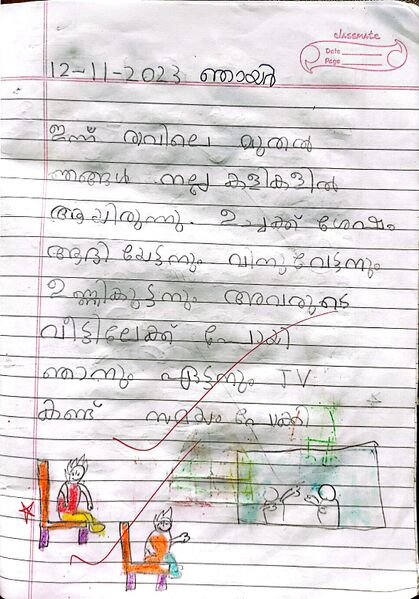 classmate
Date
Page
12-11-2023 ഞായർ
ഇന്ന് രാവിലെ മുതൽ
ഞങ്ങൾ നല്ല കളികളിൽ
ആയിരുന്നു. ഉച്ചക്ക് ശേഷം
ആദി യേട്ടനും വിനുവേട്ടനും
ഉണ്ണികുട്ടനും അവരുടെ
വീട്ടിലേക്ക് പോയി
ഞാനും ഏട്ടനും TV
കണ്ട് സമയം പോക്കി